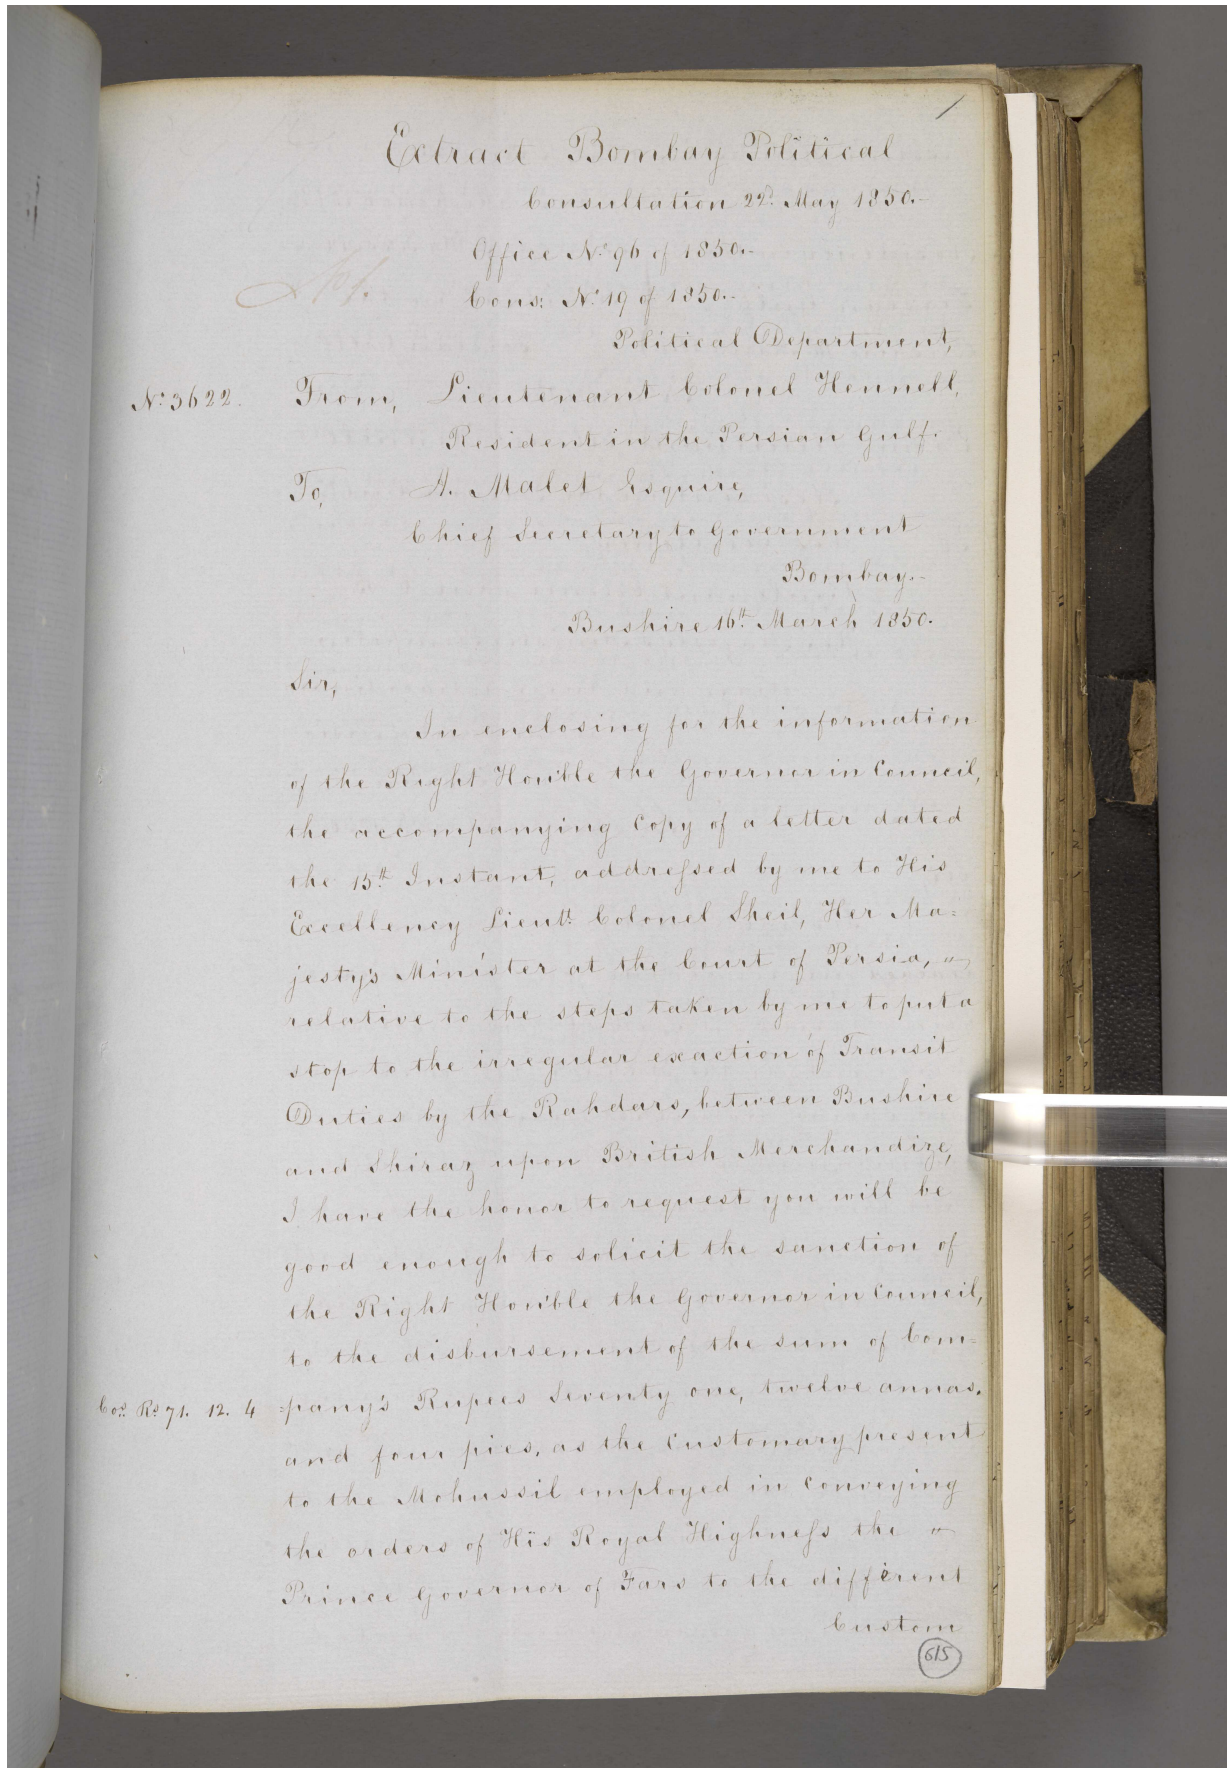 1
Extract Bombay Political
Consultation 22d. May 1850.-
Office No. 96 of 1850.-
Cons: No. 19 of 1850.-
Political Department,
No. 3622.
From, Lieutenant Colonel Hennell,
Resident in the Persian Gulf.
To, A. Malet Esquire,
Chief Secretary to Government
Bombay.-
Bushire 16th. March 1850.
Sir,
In enclosing for the information
of the Right Hon'ble the Governor in Council,
the accompanying Copy of a letter dated
the 15th. Instant, addressed by me to His
Excellency Lieutt. Colonel Sheil, Her Ma=
jesty's Minister at the Court of Persia, "
relative to the steps taken by me to put a
stop to the irregular exaction of Transit
Duties by the Rahdars, between Bushire
and Shiraz upon British Merchandize,
I have the honor to request you will be
good enough to solicit the sanction of
the Right Hon'ble the Governor in Council,
to the disbursement of the sum of Com=
Cos. Rs. 71. 12. 4 =pany's Rupees Seventy one, twelve annas.
and four pies, as the Customary present
to the Mohussil employed in Conveying
the orders of His Royal Highness the "
Prince Governor of Fars to the different
Custom
615